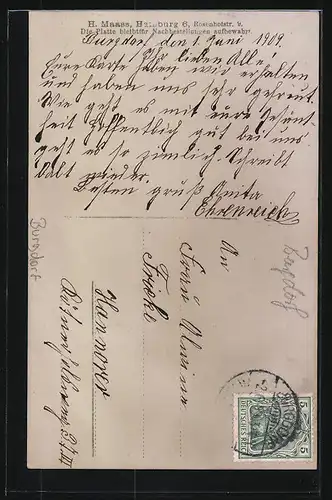 H. Maass, Hamburg 6, Rosenhofstr. 
Die Platte bleibt für Nachbestellungen aufbewahrt.
Burgdorf, den 1. Juni 1909.
Eure Karte Ihr lieben Alle
haben wir erhalten
und haben uns sehr gefreut.
Wie geht es mit eure Gesund-
heit hoffentlich gut bei uns
geht es so ziemlich. Schreibt
balt wieder.
Besten gruß Anita
Ehrenreich
An
Frau
Hannover
Burgdorf
Burgdorf
DEUTSCHES REICH
5
5